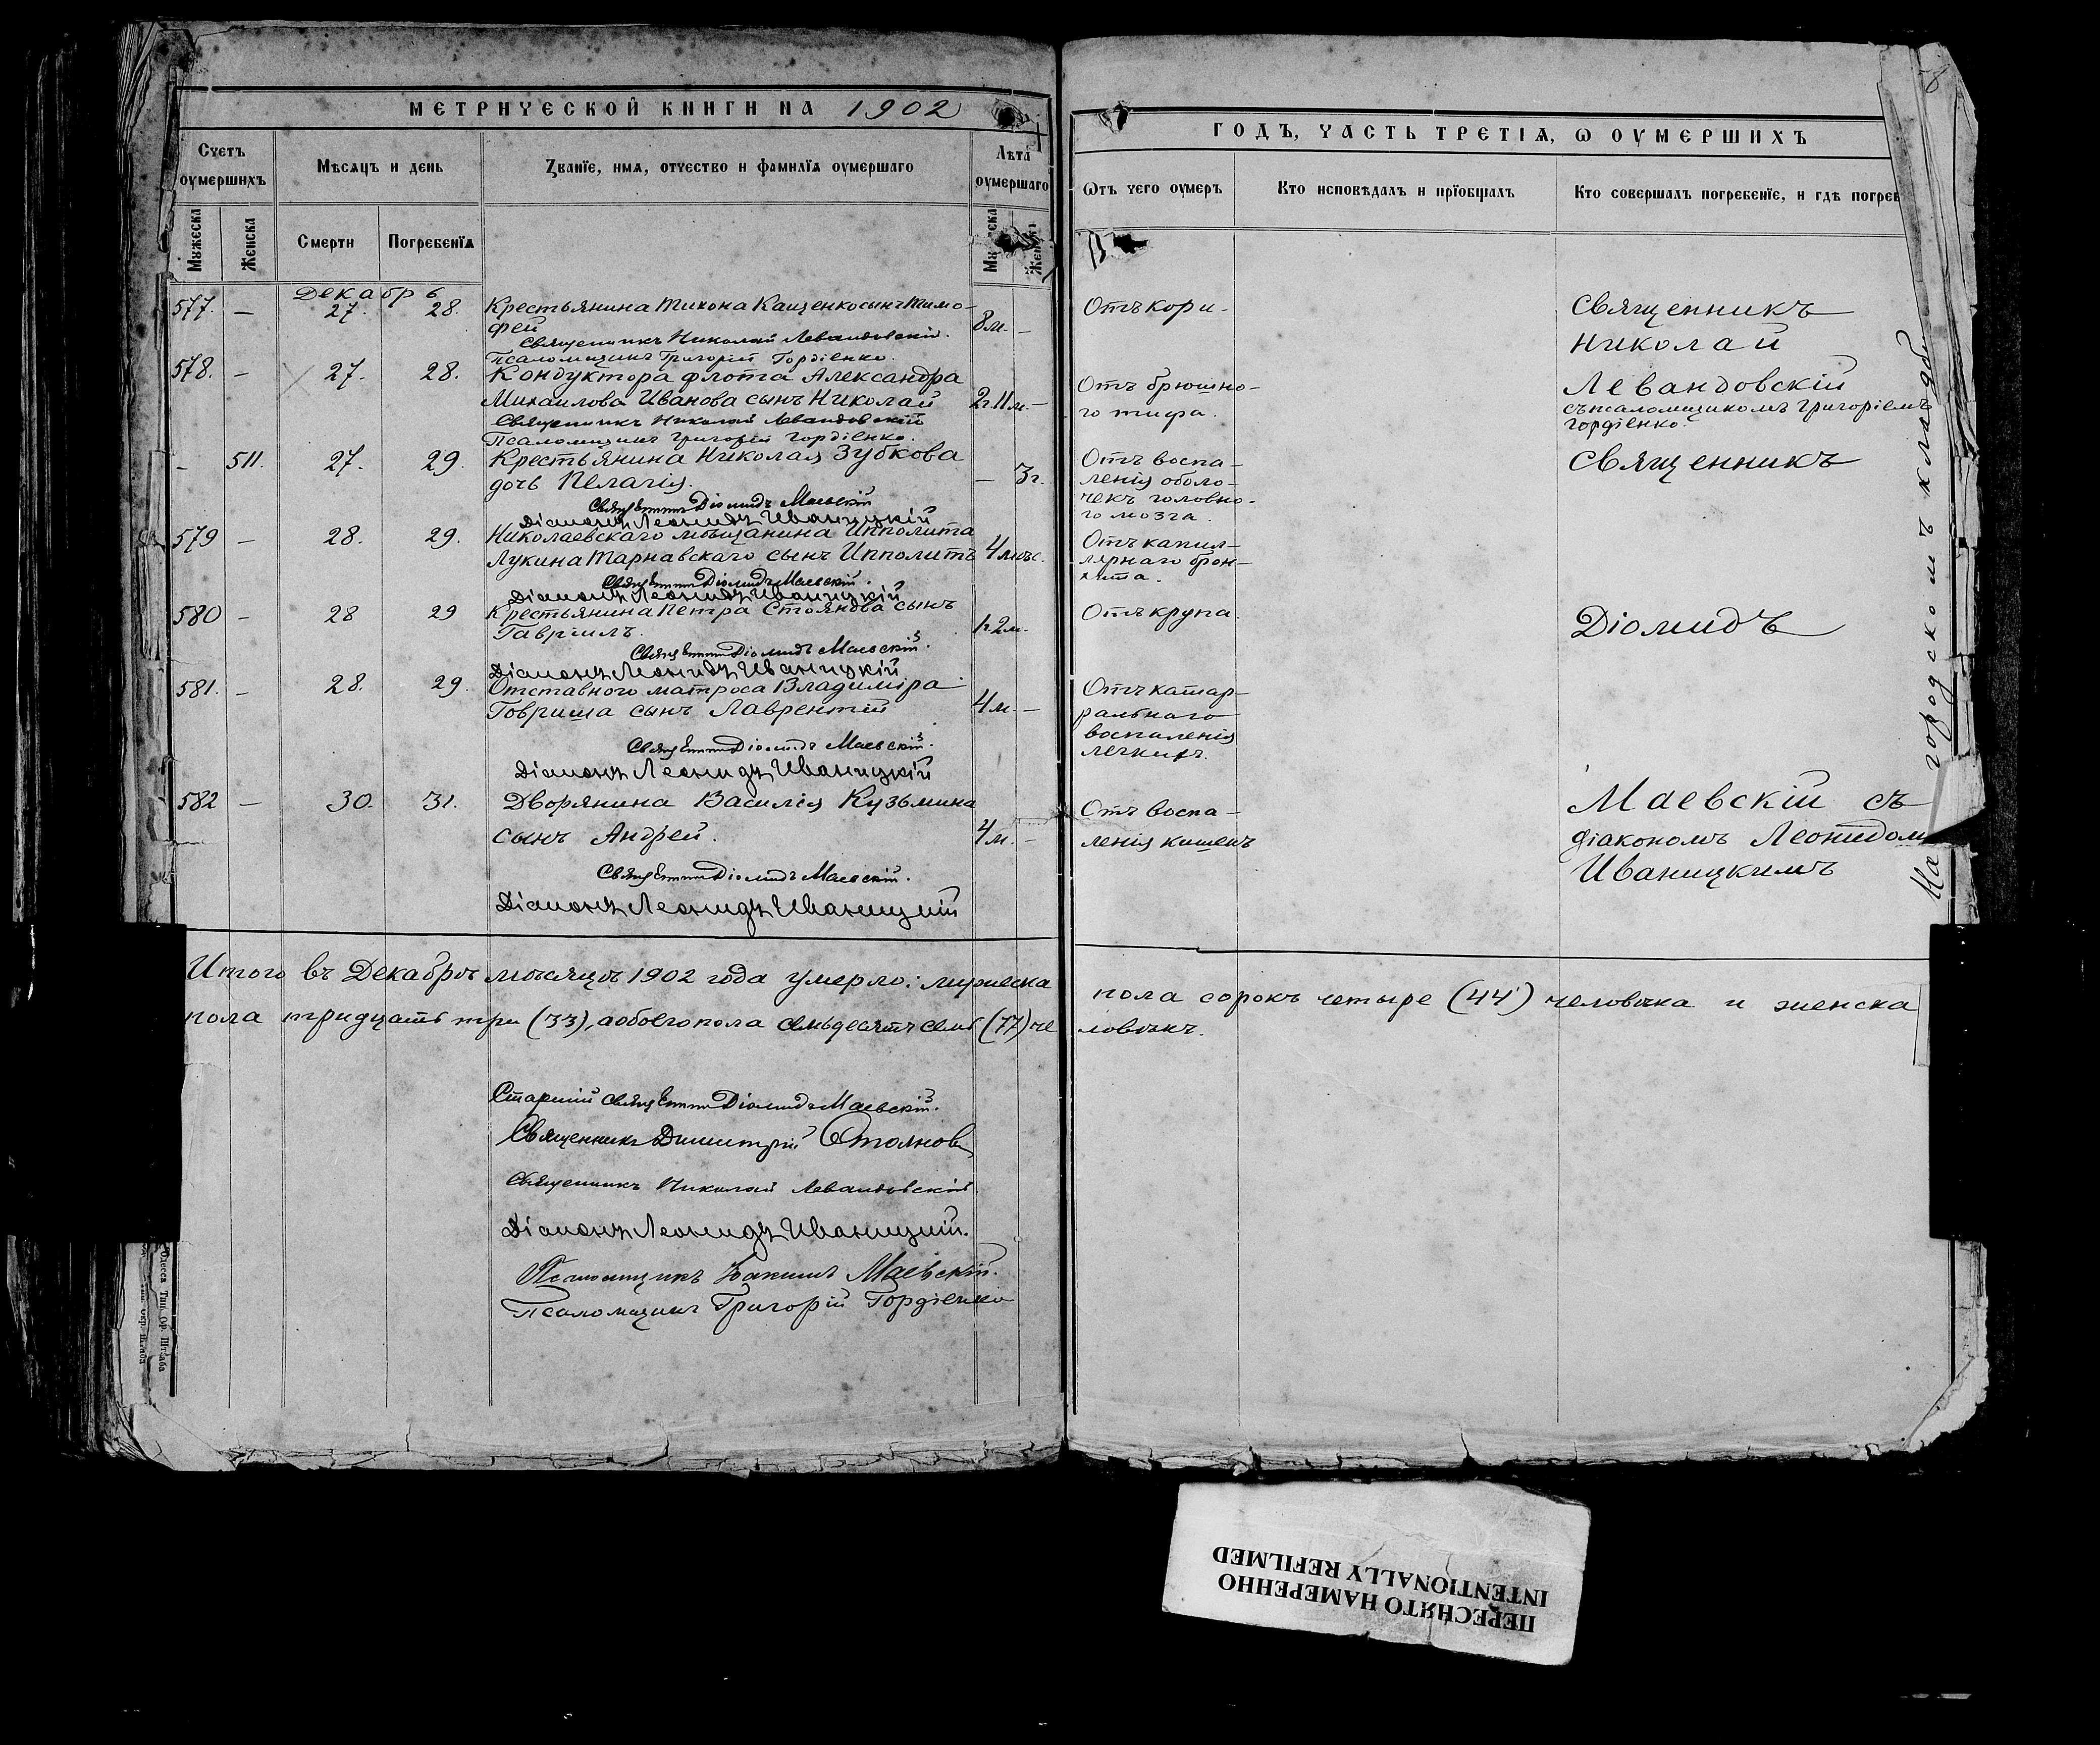 МЕТРИЧЕСКОЙ КНИГИ НА 1902
Счетъ оумершихъ
Мѣсяцъ и день
Званїе, имя, отчество и фамилїя оумершаго
Лѣта оумершаго
Мужеска
Женска
Смерти
Погребенїя
Декабрь
577. — 27. 28. Крестьянина Тихона Кащенко сынъ Тимо-
фей 8 м. —
Священникъ Николай Левандовскій.
Псаломщикъ Григорій Гордіенко.
578. — 27. 28. Кондуктора флота Александра
Михаилова Иванова сынъ Николай 2 г. 11 м. —
Священникъ Николай Левандовскій
Псаломщикъ Григорій Гордіенко.
- 511. 27. 29. Крестьянина Николая Зубкова
дочь Пелагія. — 3 г.
Священникъ Діомидъ Маевскій
Діаконъ Леонидъ Иваницкій
579 — 28. 29. Николаевскаго мѣщанина Ипполита
Лукина Тарнавскаго сынъ Ипполитъ 4 мѣс.
Священникъ Діомидъ Маевскій.
Діаконъ Леонидъ Иваницкій
580 — 28 29 Крестьянина Петра Стоянова сынъ
Гавріилъ. 1 г. 2 м.
Священникъ Діомидъ Маевскій.
Діаконъ Леонидъ Иваницкій
581. — 28. 29. Отставного матроса Владиміра
Говриша сынъ Лаврентій 4 м. —
Священникъ Діомидъ Маевскій.
Діаконъ Леонидъ Иваницкій
582 — 30. 31. Дворянина Василія Кузьмина
сынъ Андрей. 4 м. —
Священникъ Діомидъ Маевскій.
Діаконъ Леонидъ Иваницкій
Итого въ Декабрѣ мѣсяцѣ 1902 года умерло: мужеска
пола тридцать три (33), а обоего пола семьдесятъ семь (77) че
Старшій священникъ Діомидъ Маевскій.
Священникъ Димитрій Стояновъ
Священникъ Николай Левандовскій.
Діаконъ Леонидъ Иваницкій.
Псаломщикъ Іоакимъ Маевскій.
Псаломщикъ Григорій Гордіенко
ГОДЪ, ЧАСТЬ ТРЕТІЯ, Ѡ ОУМЕРШИХЪ
Ѿтъ чего оумеръ
Кто исповѣдалъ и прїобщалъ
Кто совершалъ погребенїе, и гдѣ погреб
Отъ кори.
Отъ брюшно-
го тифа.
Отъ воспа-
ленія оболо-
чекъ головно-
го мозга.
Отъ капил-
лярнаго брон-
хита.
Отъ крупа.
Отъ катар-
ральнаго
воспаленія
легкихъ.
Отъ воспа-
ленія кишекъ
Священникъ
Николай
Левандовскій
съ псаломщикомъ Григоріемъ
Гордіенко.
Священникъ
Діомидъ
Маевскій съ
діакономъ Леонидом
Иваницкимъ
На городскомъ кладб
пола сорокъ четыре (44) человѣка и женска
ловѣкъ.
ПЕРЕСНЯТО НАМЕРЕННО
INTENTIONALLY REFILMED